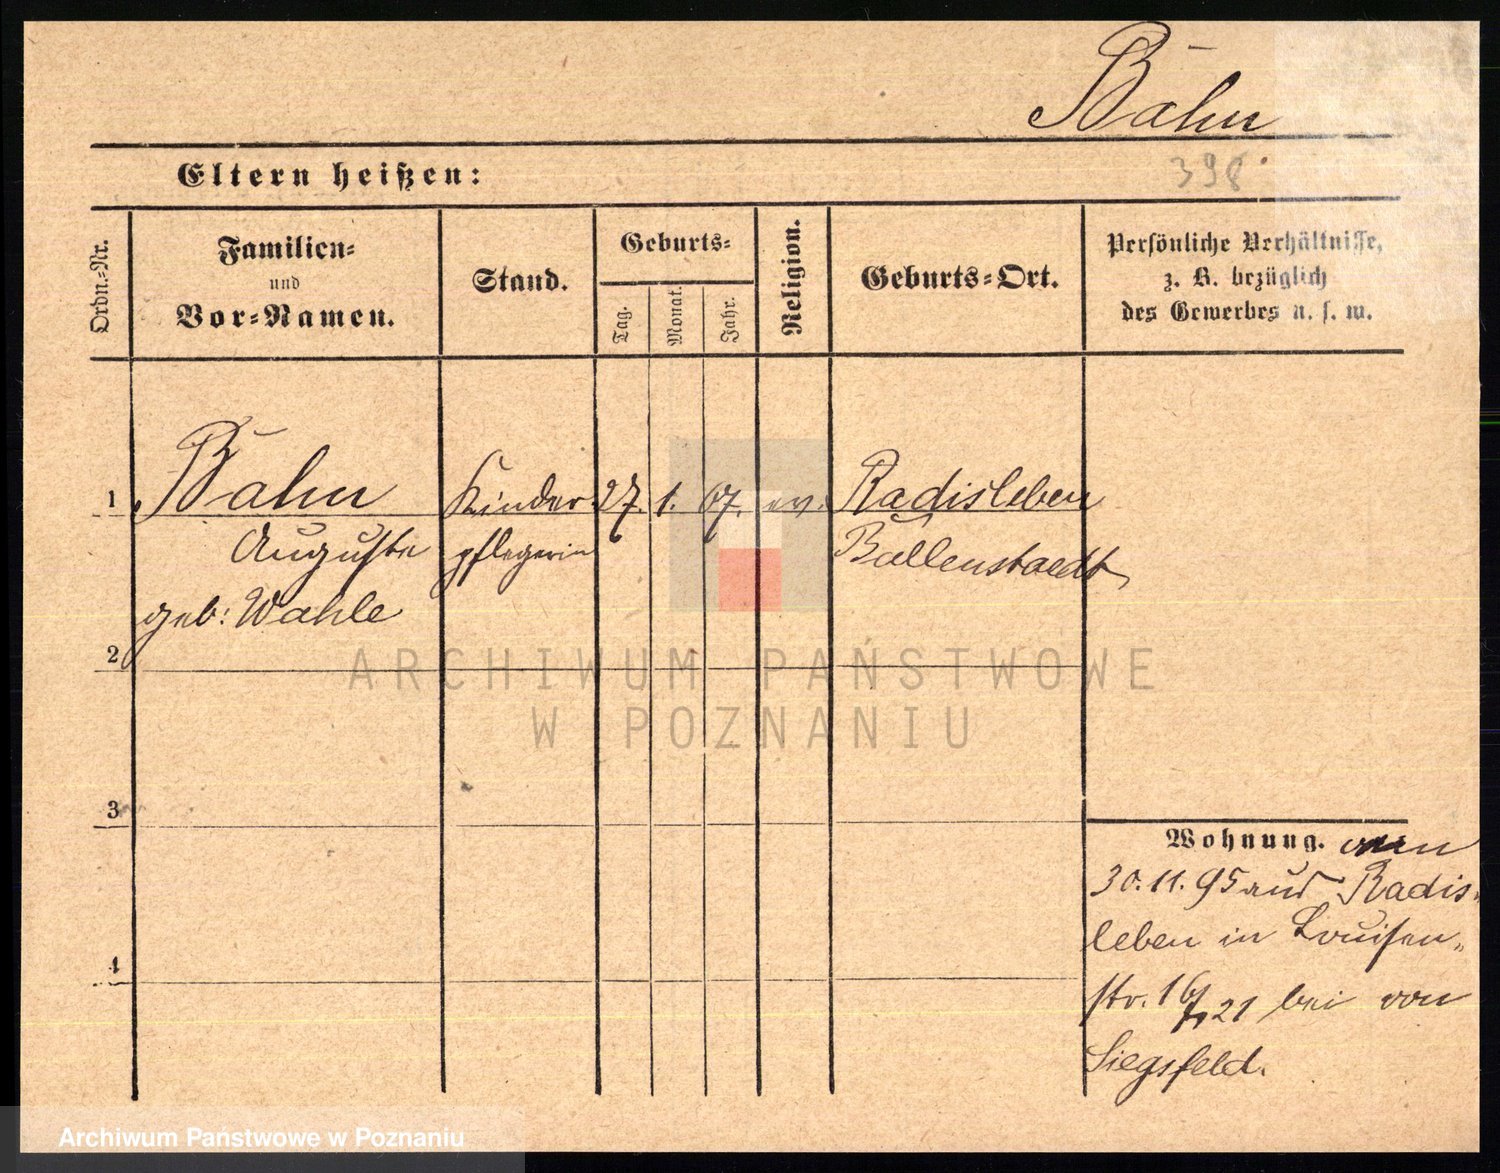 Bahn
398
Eltern heißen:
Ordn.-Nr.
Familien-
und
Vor-Namen.
Stand.
Geburts-
Tag.
Monat.
Jahr.
Religion.
Geburts-Ort.
Persönliche Verhältnisse,
z. B. bezüglich
des Gewerbes u. s. w.
1 Bahn Kinder- 27. 1. 67. ev. Radisleben
Auguste pflegerin Ballenstaedt
geb: Wahle
2
3
4
Wohnung.
30.11.95 aus Radis-
leben in Louisen-
str. 16 21 bei von
Siegsfeld.
ARCHIWUM PAŃSTWOWE
W POZNANIU
Archiwum Państwowe w Poznaniu